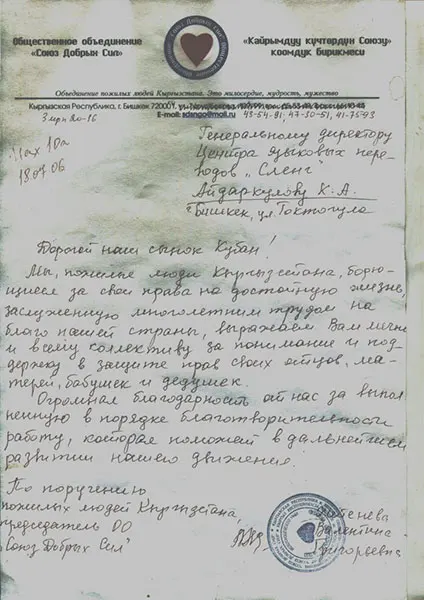 Общественное объединение
«Союз Добрых Сил»
«Кайрымдуу күчтөрдүн Союзу»
коомдук Бирикмеси
Объединение пожилых людей Кыргызстана. Это милосердие, мудрость, мужество
Кыргызская Республика, г. Бишкек 720001,
3 мрн 20-16
E-mail: sdsngo@mail.ru 43-54-81, 47-30-51, 41-75-93
Исх 10а
18.07.06
Генеральному директору
Центра языковых пере-
водов „Сленг"
Айдаркулову К. А.
г. Бишкек, ул. Токтогула
Дорогой наш сынок Кубан!
Мы, пожилые люди Кыргызстана, борю-
щиеся за свои права на достойную жизнь,
заслуженную многолетним трудом на
благо нашей страны, выражаем Вам лично
и всему коллективу за понимание и под-
держку в защите прав своих отцов, ма-
терей, бабушек и дедушек.
Огромная благодарность от нас за выпол
ненную в порядке благотворительности
работу, которая поможет в дальнейшем
развитии нашего движения.
По поручению
пожилых людей Кыргызстана,
председатель ОО
"Союз Добрых Сил"
Валентина
Григорьевна